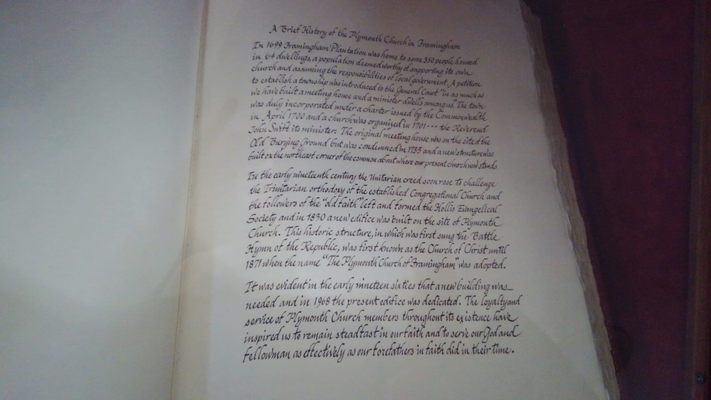 A Brief History of the Plymouth Church in Framingham
In 1699 Framingham Plantation was home to some 350 people, housed
in 64 dwellings, a population deemed worthy of supporting its own
church and assuming the responsibilities of local government. A petition
to establish a township was introduced to the General Court "in as much as
we have built a meeting house and a minister dwells among us." The town
was duly incorporated under a charter issued by the Commonwealth
in April 1700 and a church was organized in 1701 --- the Reverend
John Swift its minister. The original meeting house was on the site of the
Old Burying Ground but was condemned in 1735 and a new structure was
built on the northeast corner of the common about where our present church now stands.
In the early nineteenth century the Unitarian creed soon rose to challenge
the Trinitarian orthodoxy of the established Congregational Church and
the followers of the "old faith" left and formed the Hollis Evangelical
Society and in 1830 a new edifice was built on the site of Plymouth
Church. This historic structure, in which was first sung the Battle
Hymn of the Republic, was first known as the Church of Christ until
1871 when the name "The Plymouth Church of Framingham" was adopted.
It was evident in the early nineteen sixties that a new building was
needed and in 1968 the present edifice was dedicated. The loyalty and
service of Plymouth Church members throughout its existence have
inspired us to remain steadfast in our faith and to serve our God and
fellowman as effectively as our forefathers in faith did in their time.